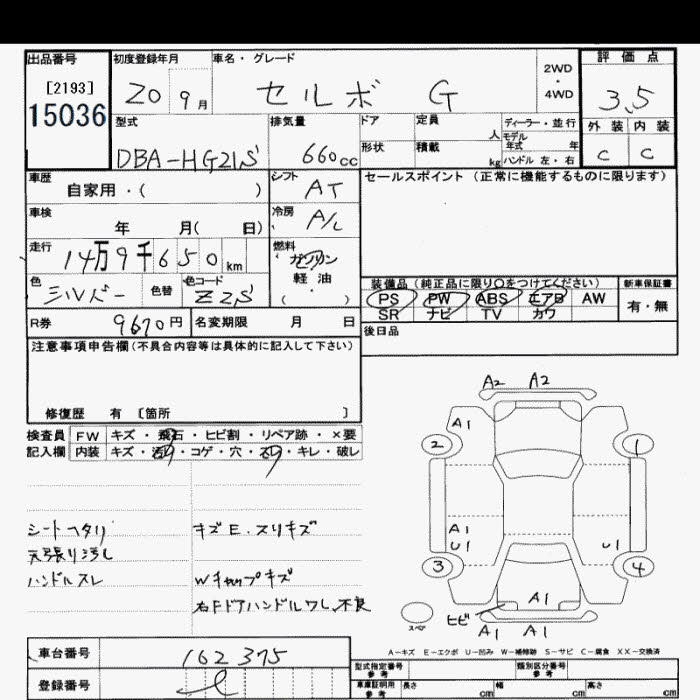 出品番号 初度登録年月 車名・グレード 2WD・4WD 評価点
[2193]
15036 20 9月 セルボ G 3.5
型式 排気量 ドア 定員 人 ディーラー・並行 外装 内装
モデル年式 年
DBA-HG21S 660cc 形状 積載 kg ハンドル 左・右 C C
車歴 自家用・( ) シフト AT セールスポイント(正常に機能するものに限ります)
車検 年 月( 日) 冷房 A/C
走行 14万9千650km 燃料 ガソリン
軽油
( )
色 シルバー 色替 色コード Z2S 装備品(純正品に限り〇をつけてください) 新車保証書
PS PW ABS エアB AW 有・無
SR ナビ TV カワ
R券 9670円 名変期限 月 日 後日品
注意事項申告欄(不具合内容等は具体的に記入して下さい)
修復歴 有 [箇所 ]
検査員 FW キズ・飛石・ヒビ割・リペア跡・×要
記入欄 内装 キズ・コゲ・穴・キレ・破レ
シートヘタリ キズE.スリキズ
天張り汚し
ハンドルスレ Wキャップキズ
右Fドアハンドルワレ、不良
A2 A2
A1
2 1
A1
U1 U1
3 4
A1
スペア ヒビ
A1 A1
A-キズ E-エクボ U-凹み W-補修跡 S-サビ C-腐食 XX-交換済
車台番号 162375
型式指定番号 参考 類別区分番号 参考
登録番号
車庫証明用 参考 長さ cm 幅 cm 高さ cm